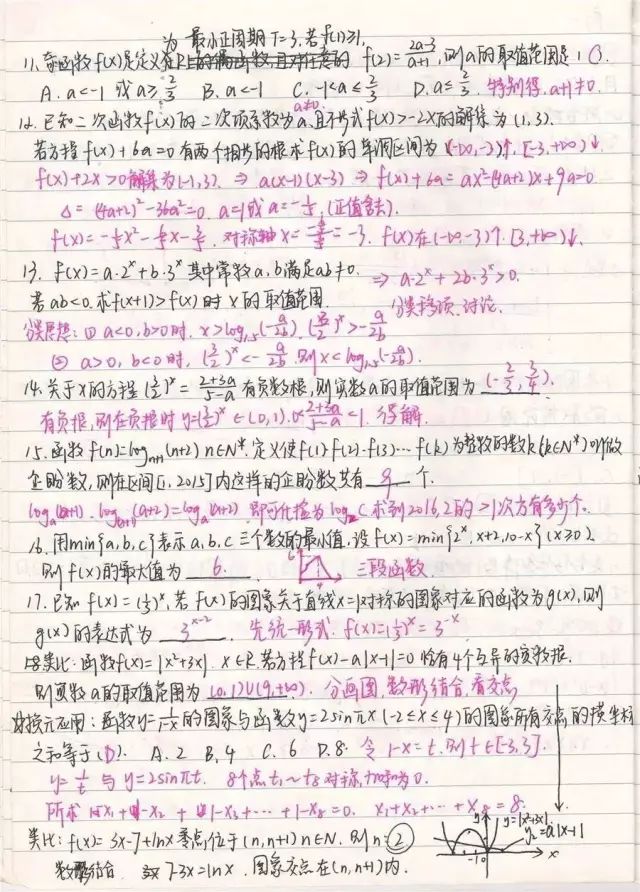 为 最小正周期T=3,若f(1)>1,
11.奇函数f(x)是定义在R上的 f(2)=(2a-3)/(a+1),则a的取值范围是:C.
A. a<-1 或a≥2/3 B. a<-1 C. -1<a≤2/3 D. a≤2/3. 特别得. a+1≠0
12.已知二次函数f(x)的二次项系数为a,且不等式f(x)>-2x的解集为(1,3).
a≠0.
若方程f(x)+6a=0有两个相等的根求f(x)的单调区间为(-∞,-3)↑.[-3,+∞)↓
f(x)+2x>0解集为(-1,3). ⇒ a(x-1)(x-3) ⇒ f(x)+6a=ax²-(4a+2)x+9a=0
Δ=(4a+2)²-36a²=0. a=1或a=-1/5.(正值舍去).
f(x)=-1/5x²-6/5x-3/5. 对称轴x= =-3. f(x)在(-∞-3)↑. [3,+∞)↓.
13. f(x)=a·2ˣ+b·3ˣ其中常数a、b满足ab≠0. ⇒ a·2ˣ+2b·3ˣ>0.
若ab<0,求f(x+1)>f(x)时x的取值范围. 分类移项.讨论.
分类思想:① a<0,b>0时. x>log₁.₅(-a/2b). (3/2)ˣ>-a/2b
② a>0, b<0时. (3/2)ˣ<-a/2b.则x<log₁.₅(-a/2b).
14.关于x的方程(3/2)ˣ=(2+3a)/(5-a)有负数根,则实数a的取值范围为(-2/3,3/4).
有负根,则在负根时y=(3/2)ˣ∈(0,1).0<(2+3a)/(5-a)<1. 得解.
15.函数f(n)=logₙ₊₁(n+2) n∈N*.定义使f(1)·f(2)·f(3)…f(k)为整数的数k(k∈N*)叫做
企盼数,则在区间[1,2015]内这样的企盼数共有 9 个.
logₐ(a+1)·logₐ₊₁(a+2)=logₐ(a+2). 即可化捡为log₂C求到2016,2的>1次方有多少个.
16.用min{a,b,c}表示a,b,c三个数的最小值,设f(x)=min{2ˣ,x+2,10-x}(x≥0).
则f(x)的最大值为 6. 三段函数.
17.已知f(x)=(1/3)ˣ,若f(x)的图象关于直线x=1对称的图象对应的函数为g(x),则
g(x)的表达式为 3ˣ⁻². 先统一形式. f(x)=(1/3)ˣ=3⁻ˣ
18类比:函数f(x)=|x²+3x|. x∈R.若方程f(x)-a|x-1|=0恰有4个互异的实数根.
则实数a的取值范围为(0,1)∪(9,+∞). 分画图,数形结合,看交点
换元应用:函数y=1/(1-x)的图象与函数y=2sinπx(-2≤x≤4)的图象所有交点的横坐标
之和等于(D). A. 2 B. 4 C. 6 D. 8. 令1-x=t.则t∈[-3,3].
y=1/t与y=2sinπt. 8个点t₁~t₈对称,加和为0.
所求 1-x₁+1-x₂+1-x₃+…+1-x₈=0. x₁+x₂+…+x₈=8.
类比:f(x)=3x-7+lnx零点位于(n,n+1)n∈N.则n=②
y=|x²+3x|
y₂=a|x-1|
-1 0 x
数形结合 7-3x=lnx. 图象交点在(n,n+1)内.